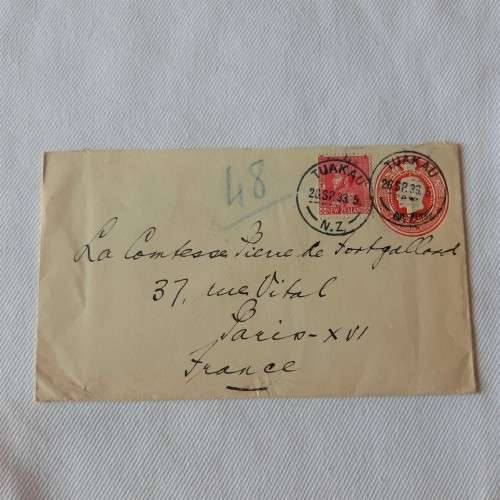 48
TUAKAU
26 SP. 33. 5
N.Z.
NEW ZEALAND
TUAKAU
26 SP. 33.
La Comtesse Pierre de Fortgalland
37, rue Vital
Paris-XVI
France